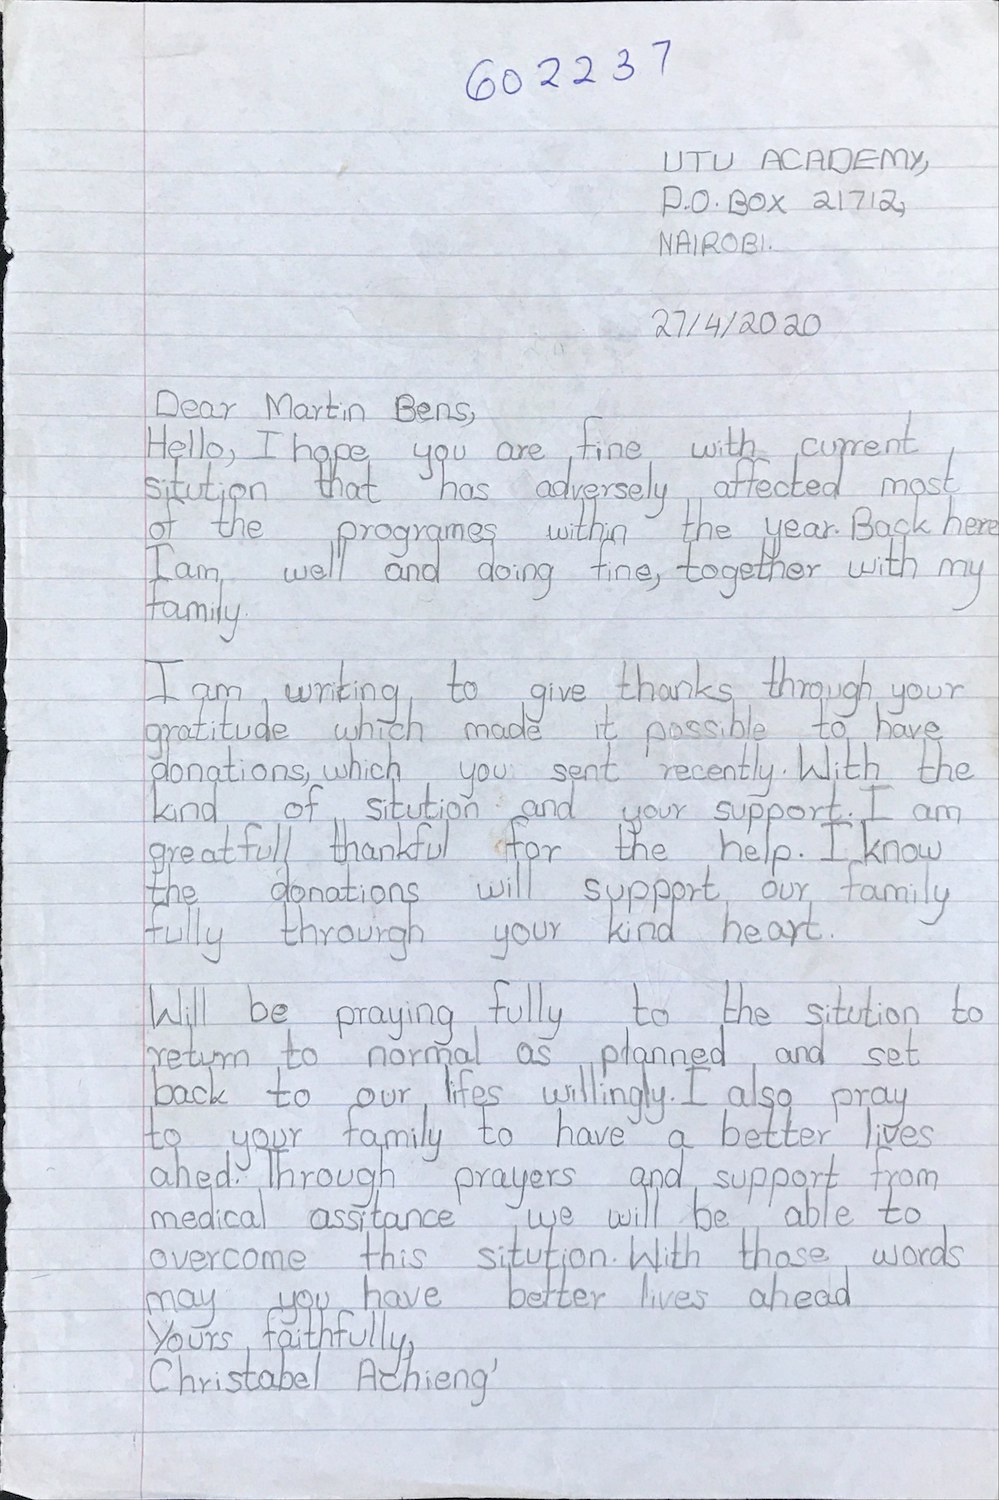 602237
UTU ACADEMY,
P.O. BOX 21712,
NAIROBI.
27/4/2020
Dear Martin Bens,
Hello, I hope you are fine with current
sitution that has adversely affected most
of the programes within the year. Back here
I am well and doing fine, together with my
family.
I am writing to give thanks through your
gratitude which made it possible to have
donations, which you sent recently. With the
kind of sitution and your support. I am
greatfull thankful for the help. I know
the donations will support our family
fully throurgh your kind heart.
Will be praying fully to the sitution to
return to normal as planned and set
back to our lifes willingly. I also pray
to your family to have a better lives
ahed. Through prayers and support from
medical assitance we will be able to
overcome this sitution. With those words
may you have better lives ahead
Yours faithfully,
Christabel Achieng'